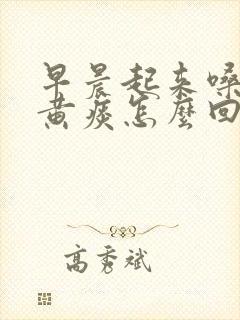 早晨起来嗓
黄痰怎麽回
高秀斌